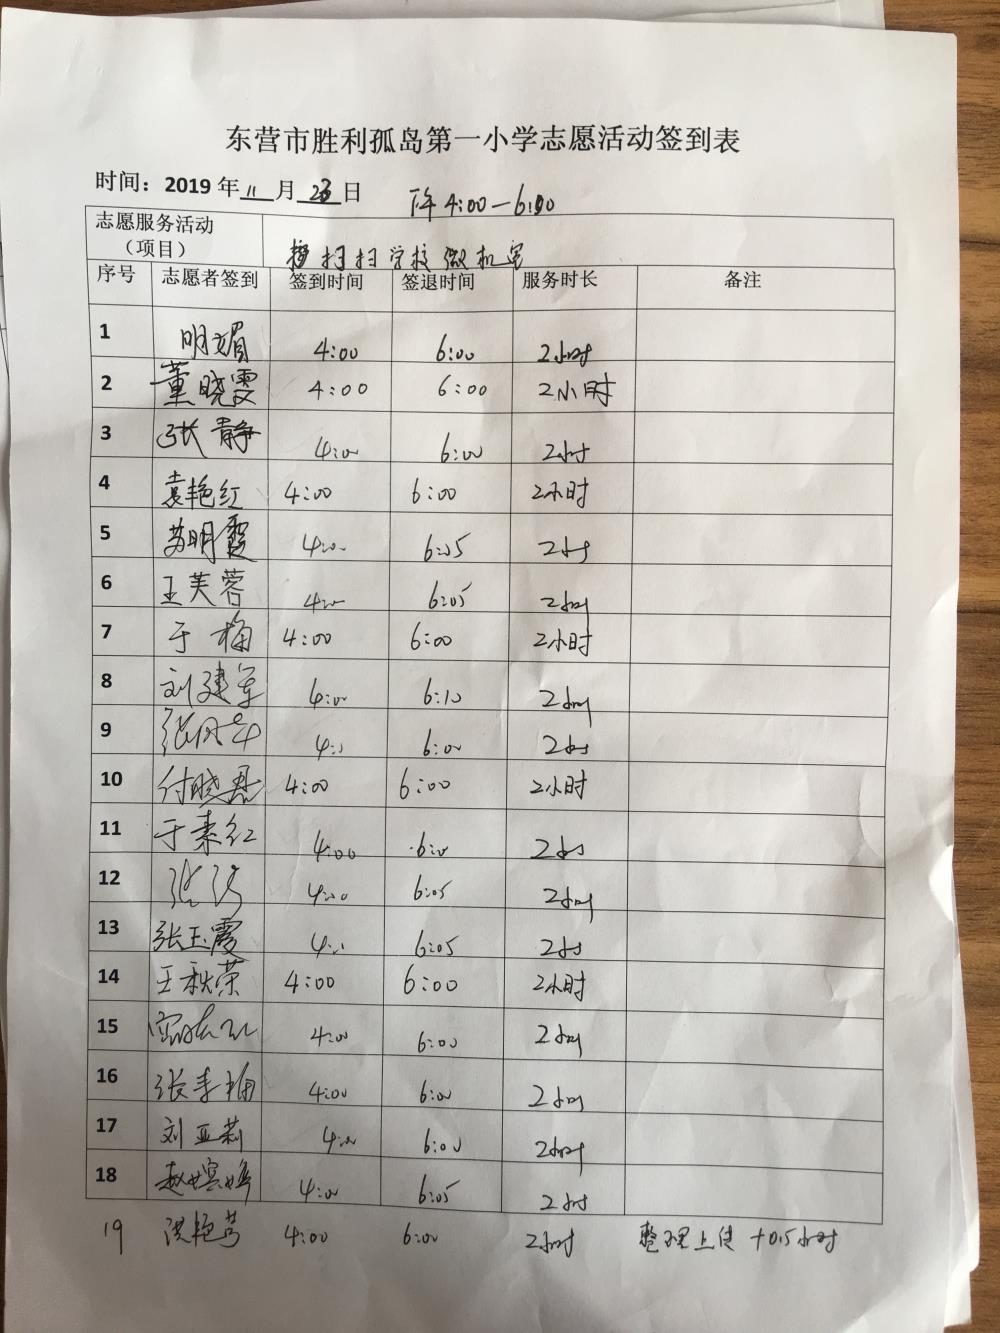 东营市胜利孤岛第一小学志愿活动签到表
时间：2019年11月23日 下午4:00—6:00
志愿服务活动（项目） 打扫学校微机室
序号 志愿者签到 签到时间 签退时间 服务时长 备注
1 明媚 4:00 6:00 2小时
2 董晓雯 4:00 6:00 2小时
3 张静 4:00 6:00 2小时
4 袁艳红 4:00 6:00 2小时
5 苏明霞 4:00 6:05 2小时
6 王芙蓉 4:00 6:05 2小时
7 于梅 4:00 6:00 2小时
8 刘建军 4:00 6:10 2小时
9 4:00 6:00 2小时
10 付晓磊 4:00 6:00 2小时
11 于素红 4:00 6:00 2小时
12 张涛 4:00 6:05 2小时
13 张玉霞 4:00 6:05 2小时
14 王秋荣 4:00 6:00 2小时
15 4:00 6:00 2小时
16 张春梅 4:00 6:00 2小时
17 刘亚莉 4:00 6:00 2小时
18 4:00 6:05 2小时
19 洪艳芳 4:00 6:00 2小时 整理上传 +0.5小时